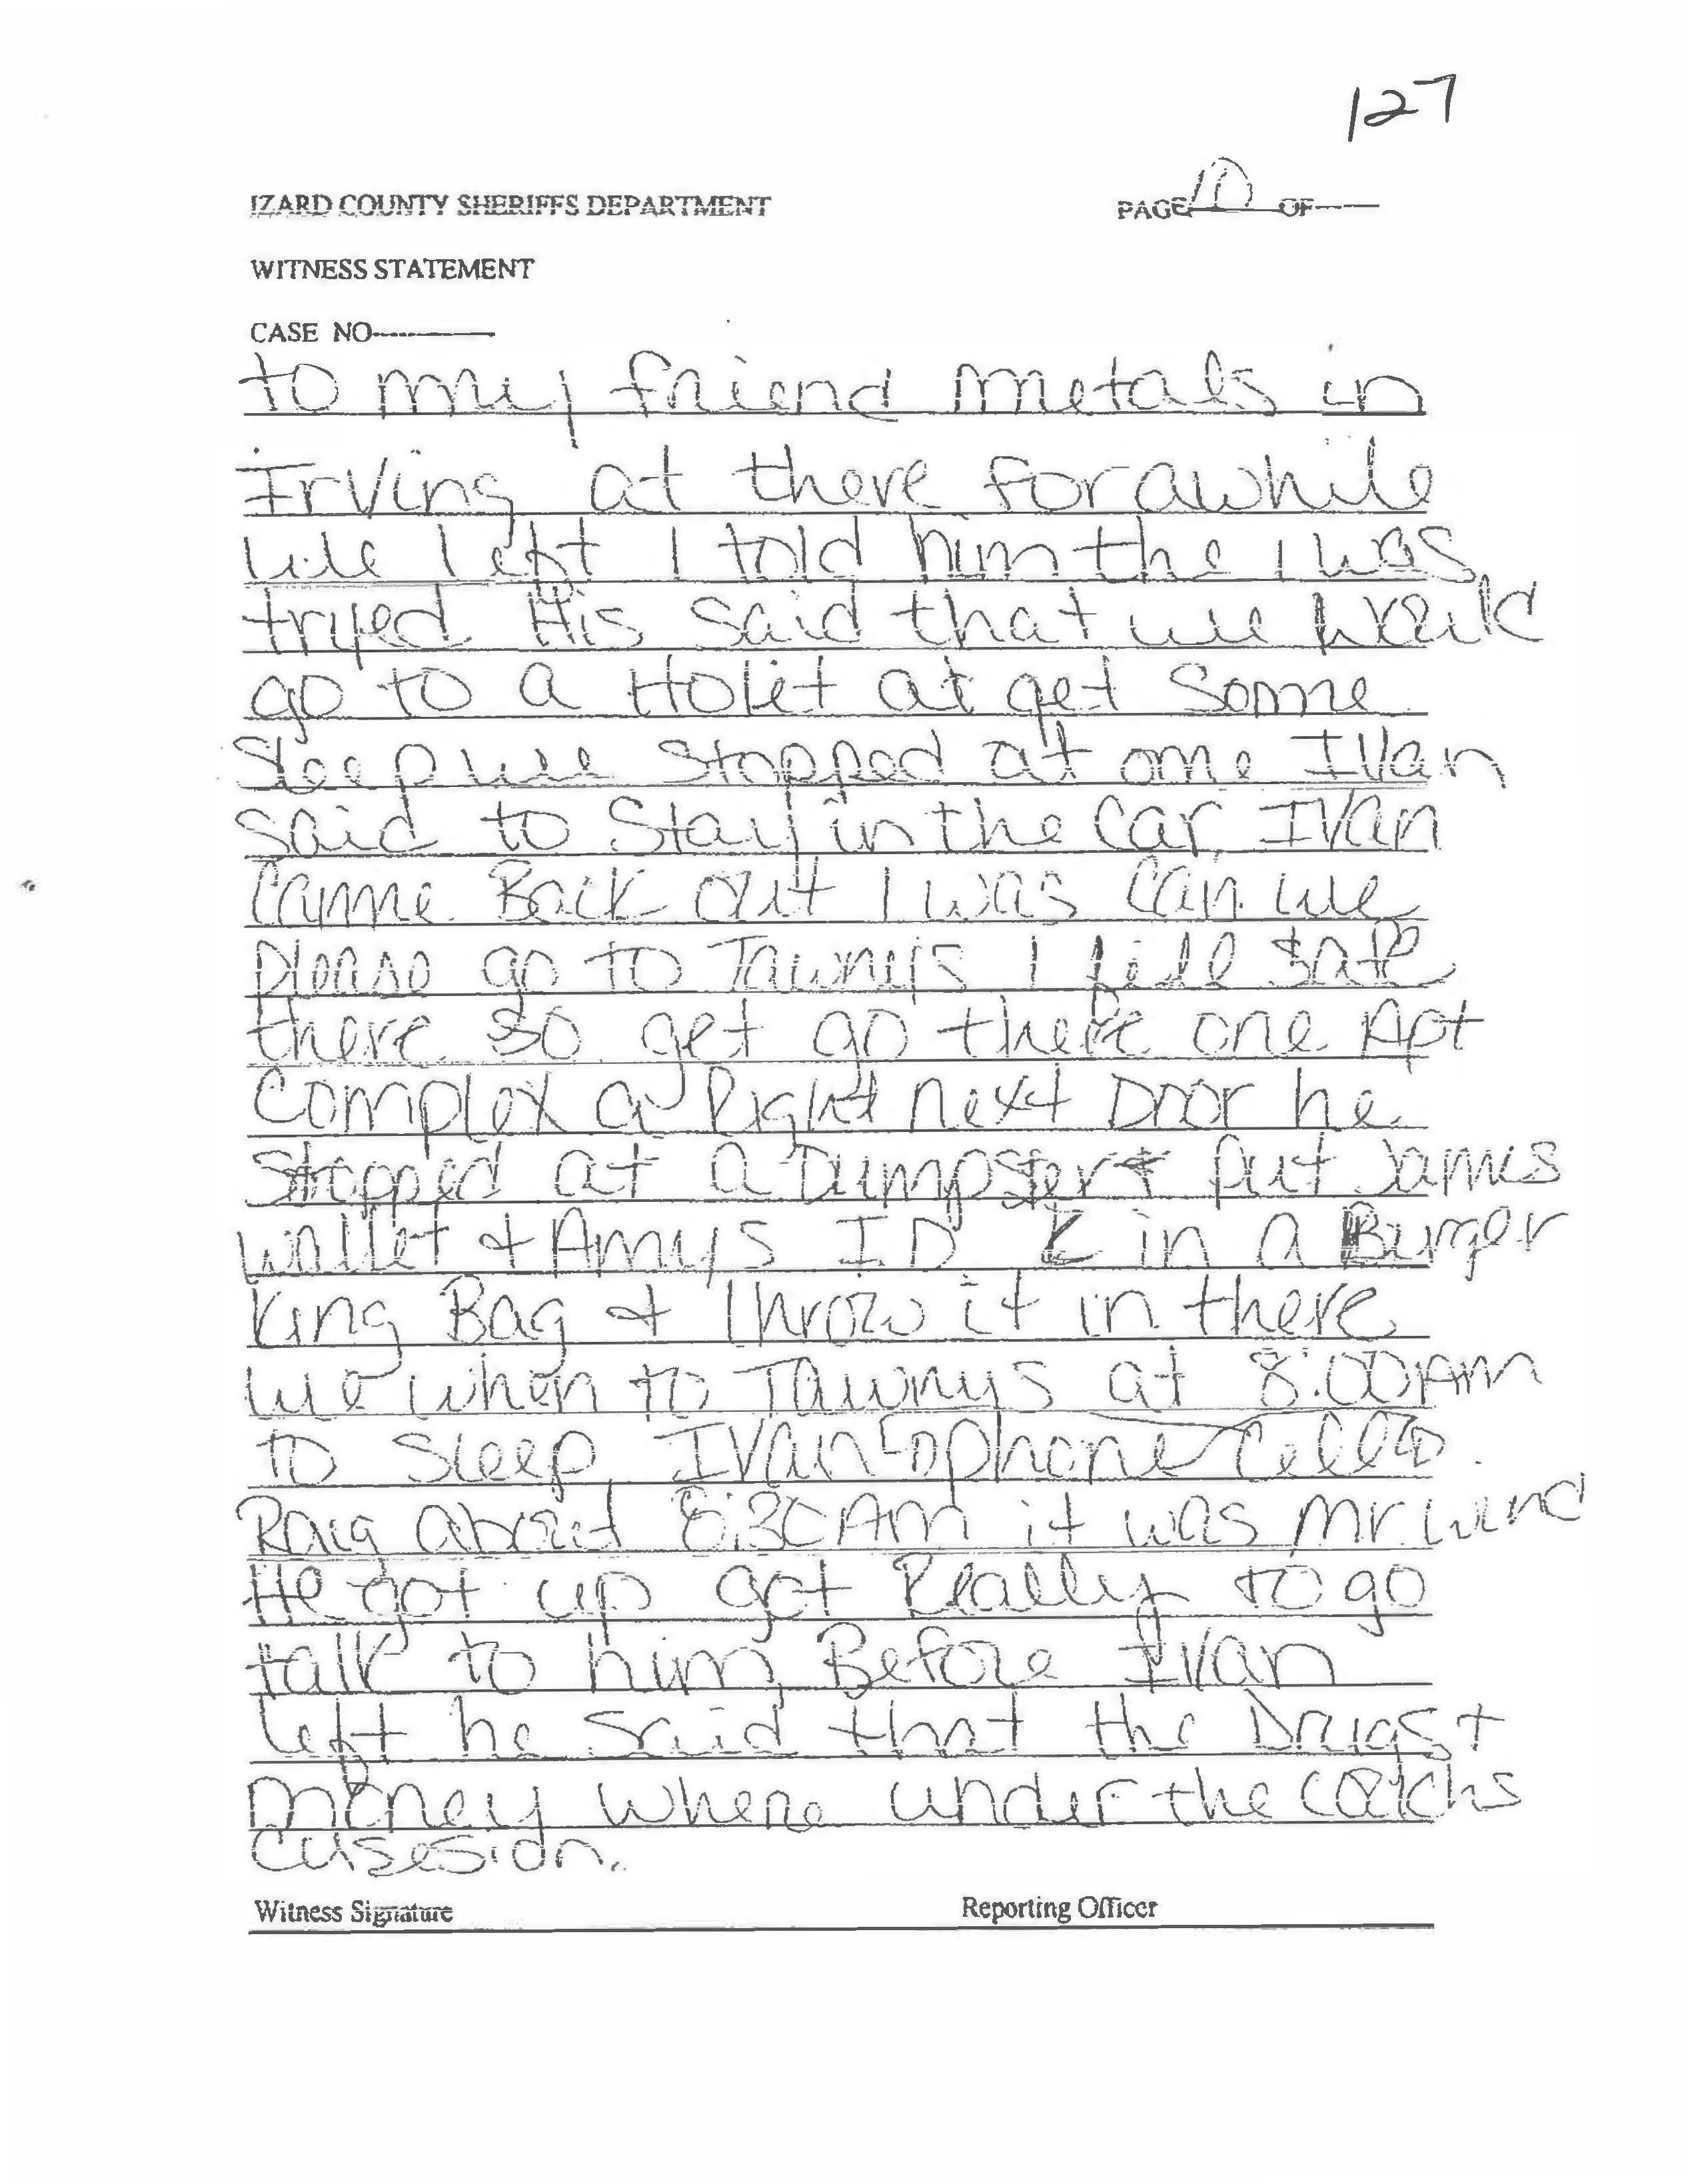 127
IZARD COUNTY SHERIFFS DEPARTMENT PAGE 10 OF
WITNESS STATEMENT
CASE NO
to my friend metals in
Irving at there for awhile
We left I told him the I was
tryed His said that we would
go to a Holit at get some
Sleep we stopped at one Ivan
said to Stay in the Car, Ivan
Came Back out I was Can we
please go to Tawnys I fell safe
there so get go there one Apt
Complex a Right next Door he
Stopped at a Dumpster & put James
wallet & Amys I.D. in a Burger
King Bag & Throw it in there
We when to Tawnys at 8:00 AM
to sleep, Ivan phone Cell
Rang about 8:30 AM it was Mr Wind
He got up got Really to go
talk to him, Before Ivan
left he said that the Drugs +
money where under the Coachs
Cusesion.
Witness Signature Reporting Officer